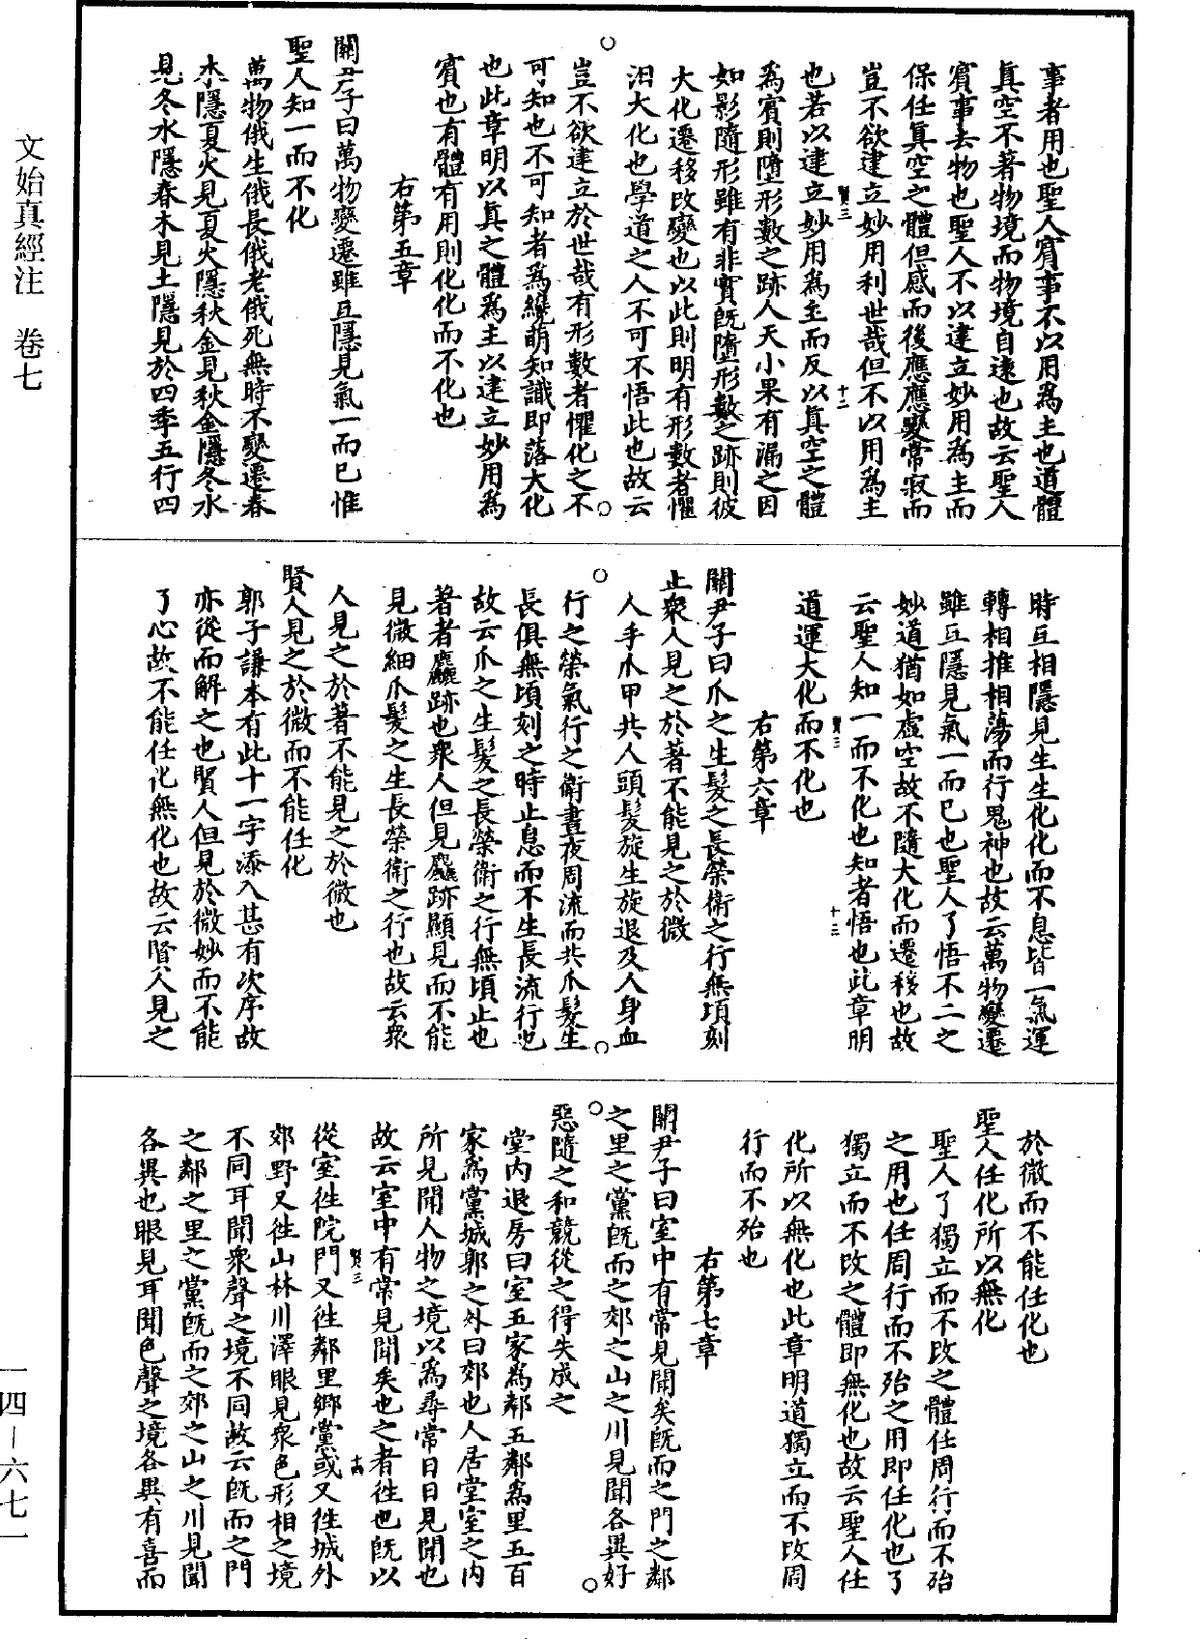 事者用也聖人賓事不以用爲主也道體
真空不著物境而物境自遠也故云聖人
賓事去物也聖人不以建立妙用爲主而
保任真空之體但感而後應應變常寂而
豈不欲建立妙用利世哉但不以用爲主
賢三
十二
也若以建立妙用爲主而反以真空之體
爲賓則墮形數之跡人天小果有漏之因
如影隨形雖有非實旣墮形數之跡則彼
大化遷移改變也以此則明有形數者懼
汨大化也學道之人不可不悟此也故云
豈不欲建立於世哉有形數者懼化之不
可知也不可知者爲纔萌知識即落大化
也此章明以真之體爲主以建立妙用爲
賓也有體有用則化化而不化也
右第五章
關尹子曰萬物變遷雖互隱見氣一而已惟
聖人知一而不化
萬物俄生俄長俄老俄死無時不變遷春
木隱夏火見夏火隱秋金見秋金隱冬水
見冬水隱春木見土隱見於四季五行四
時互相隱見生生化化而不息皆一氣運
轉相推相蕩而行鬼神也故云萬物變遷
雖互隱見氣一而已也聖人了悟不二之
妙道猶如虛空故不隨大化而遷移也故
云聖人知一而不化也知者悟也此章明
賢三
十三
道運大化而不化也
右第六章
關尹子曰爪之生髮之長榮衛之行無頃刻
止衆人見之於著不能見之於微
人手爪甲共人頭髮旋生旋退及人身血
行之榮氣行之衛晝夜周流而共爪髮生
長俱無頃刻之時止息而不生長流行也
故云爪之生髮之長榮衛之行無頃止也
著者麤跡也衆人但見麤跡顯見而不能
見微細爪髮之生長榮衛之行也故云衆
人見之於著不能見之於微也
賢人見之於微而不能任化
郭子謙本有此十一字添入甚有次序故
亦從而解之也賢人但見於微妙而不能
了心故不能任化無化也故云賢人見之
於微而不能任化也
聖人任化所以無化
聖人了獨立而不改之體任周行而不殆
之用也任周行而不殆之用即任化也了
獨立而不改之體即無化也故云聖人任
化所以無化也此章明道獨立而不改周
行而不殆也
右第七章
關尹子曰室中有常見聞矣旣而之門之鄰
之里之黨旣而之郊之山之川見聞各異好
惡隨之和競從之得失成之
堂內退房曰室五家爲鄰五鄰爲里五百
家爲黨城郭之外曰郊也人居堂室之內
所見聞人物之境以爲尋常日日見聞也
故云室中有常見聞矣也之者徃也旣以
賢三
十四
從室徃院門又徃鄰里鄉黨或又徃城外
郊野又徃山林川澤眼見衆色形相之境
不同耳聞衆聲之境不同故云旣而之門
之鄰之里之黨旣而之郊之山之川見聞
各異也眼見耳聞色聲之境各異有喜而
文始真經注 卷七
一四—六七一